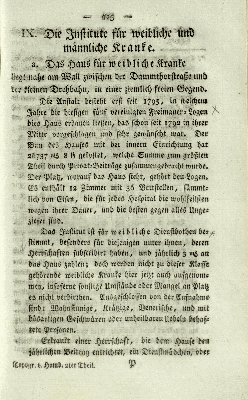 — 225 —
IX. Die Institute für weibliche und
männliche Kranke.
a. Das Haus für weibliche Kranke
liegt nahe am Wall zwischen der Dammthorstraße und
der kleinen Drehbahn, in einer ziemlich freien Gegend.
Die Anstalt besteht erst seit 1795, in welchem
Jahre die hiesigen fünf vereinigten Freimaurer-Logen
dies Haus erbauen ließen, das schon seit 1792 in ihrer
Mitte vorgeschlagen und sehr gewünscht war. Der
Bau des Hauses mit der innern Einrichtung hat
28737 kostet, welche Summe zum größten
Theil durch Privat-Beiträge zusammengebracht wurde.
Der Platz, worauf das Haus steht, gehört den Logen.
Es enthält 12 Zimmer mit 36 Bettstellen, sämmt-
lich von Eisen, die für jedes Hospital die wohlfeilsten
wegen ihrer Dauer, und die besten gegen alles Unge-
ziefer sind.
Das Institut ist für weibliche Dienstboten be-
stimmt, besonders für diejenigen unter ihnen, deren
Herrschaften subscribirt haben, und jährlich 3 an
das Haus zahlen; doch werden nicht zu dieser Klasse
gehörende weibliche Kranke hier jetzt auch aufgenom-
men, insoferne sonstige Umstände oder Mangel an Platz
es nicht verbiethen. Ausgeschlossen von der Aufnahme
sind: Wahnsinnige, Krätzige, Venerische, und mit
bösartigen Geschwüren oder unheilbaren Uebeln behaf-
tete Personen.
Erkrankt einer Herrschaft, die dem Hause den
jährlichen Beitrag entrichtet, ein Dienstmädchen, oder
(Topogr. v. Hamb. 2ter Theil. P